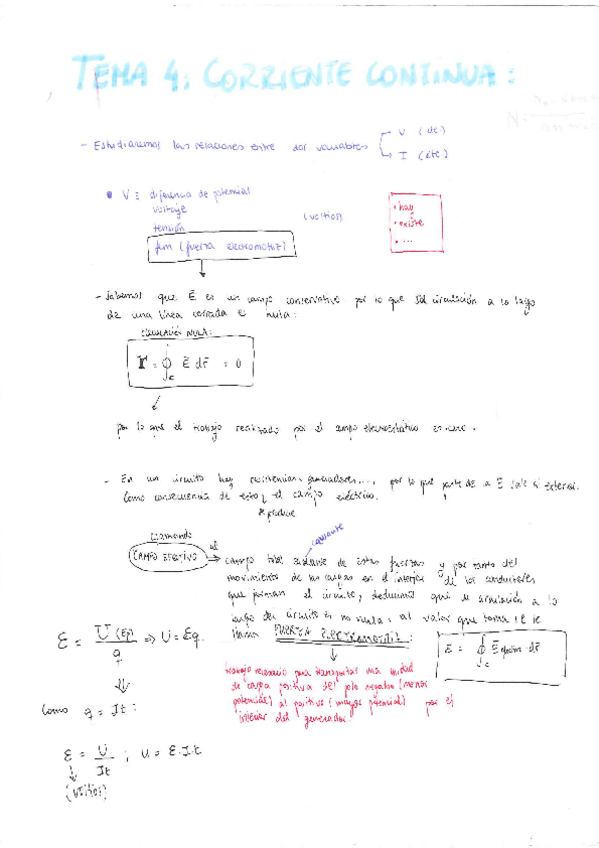 TEMA 4: CORRIENTE CONTINUA:
- Estudiaremos las relaciones entre dos variables V (cte)
I (cte)
• V ≡ diferencia de potencial
voltaje
tensión (voltios)
fem (fuerza electromotriz)
• hay
• existe
• ...
- Sabemos que E es un campo conservativo por lo que su circulación a lo largo
de una línea cerrada es nula:
CIRCULACIÓN NULA:
Γ = ∮c E dr = 0
por lo que el trabajo realizado por el campo electrostático es cero.
- En un circuito hay resistencias, generadores..., por lo que parte de la E sale al exterior.
Como consecuencia de estos y el campo eléctrico.
* produce
Llamando
CAMPO EFECTIVO al campo total de estas fuerzas y por tanto del
causante
movimiento de las cargas en el interior de los conductores
que forman el circuito, deducimos que la circulación a lo
largo del circuito es no nula: al valor que toma se le
llama FUERZA ELECTROMOTRIZ:
ε = ∮c E efectivo · dr
trabajo necesario para transportar una unidad
de carga positiva del polo negativo (menor
potencial) al positivo (mayor potencial) por el
interior del generador.
ε = U (Ep) / q ⇒ U = εq.
Como q = It:
ε = U / It ; U = ε·I·t
(voltios)